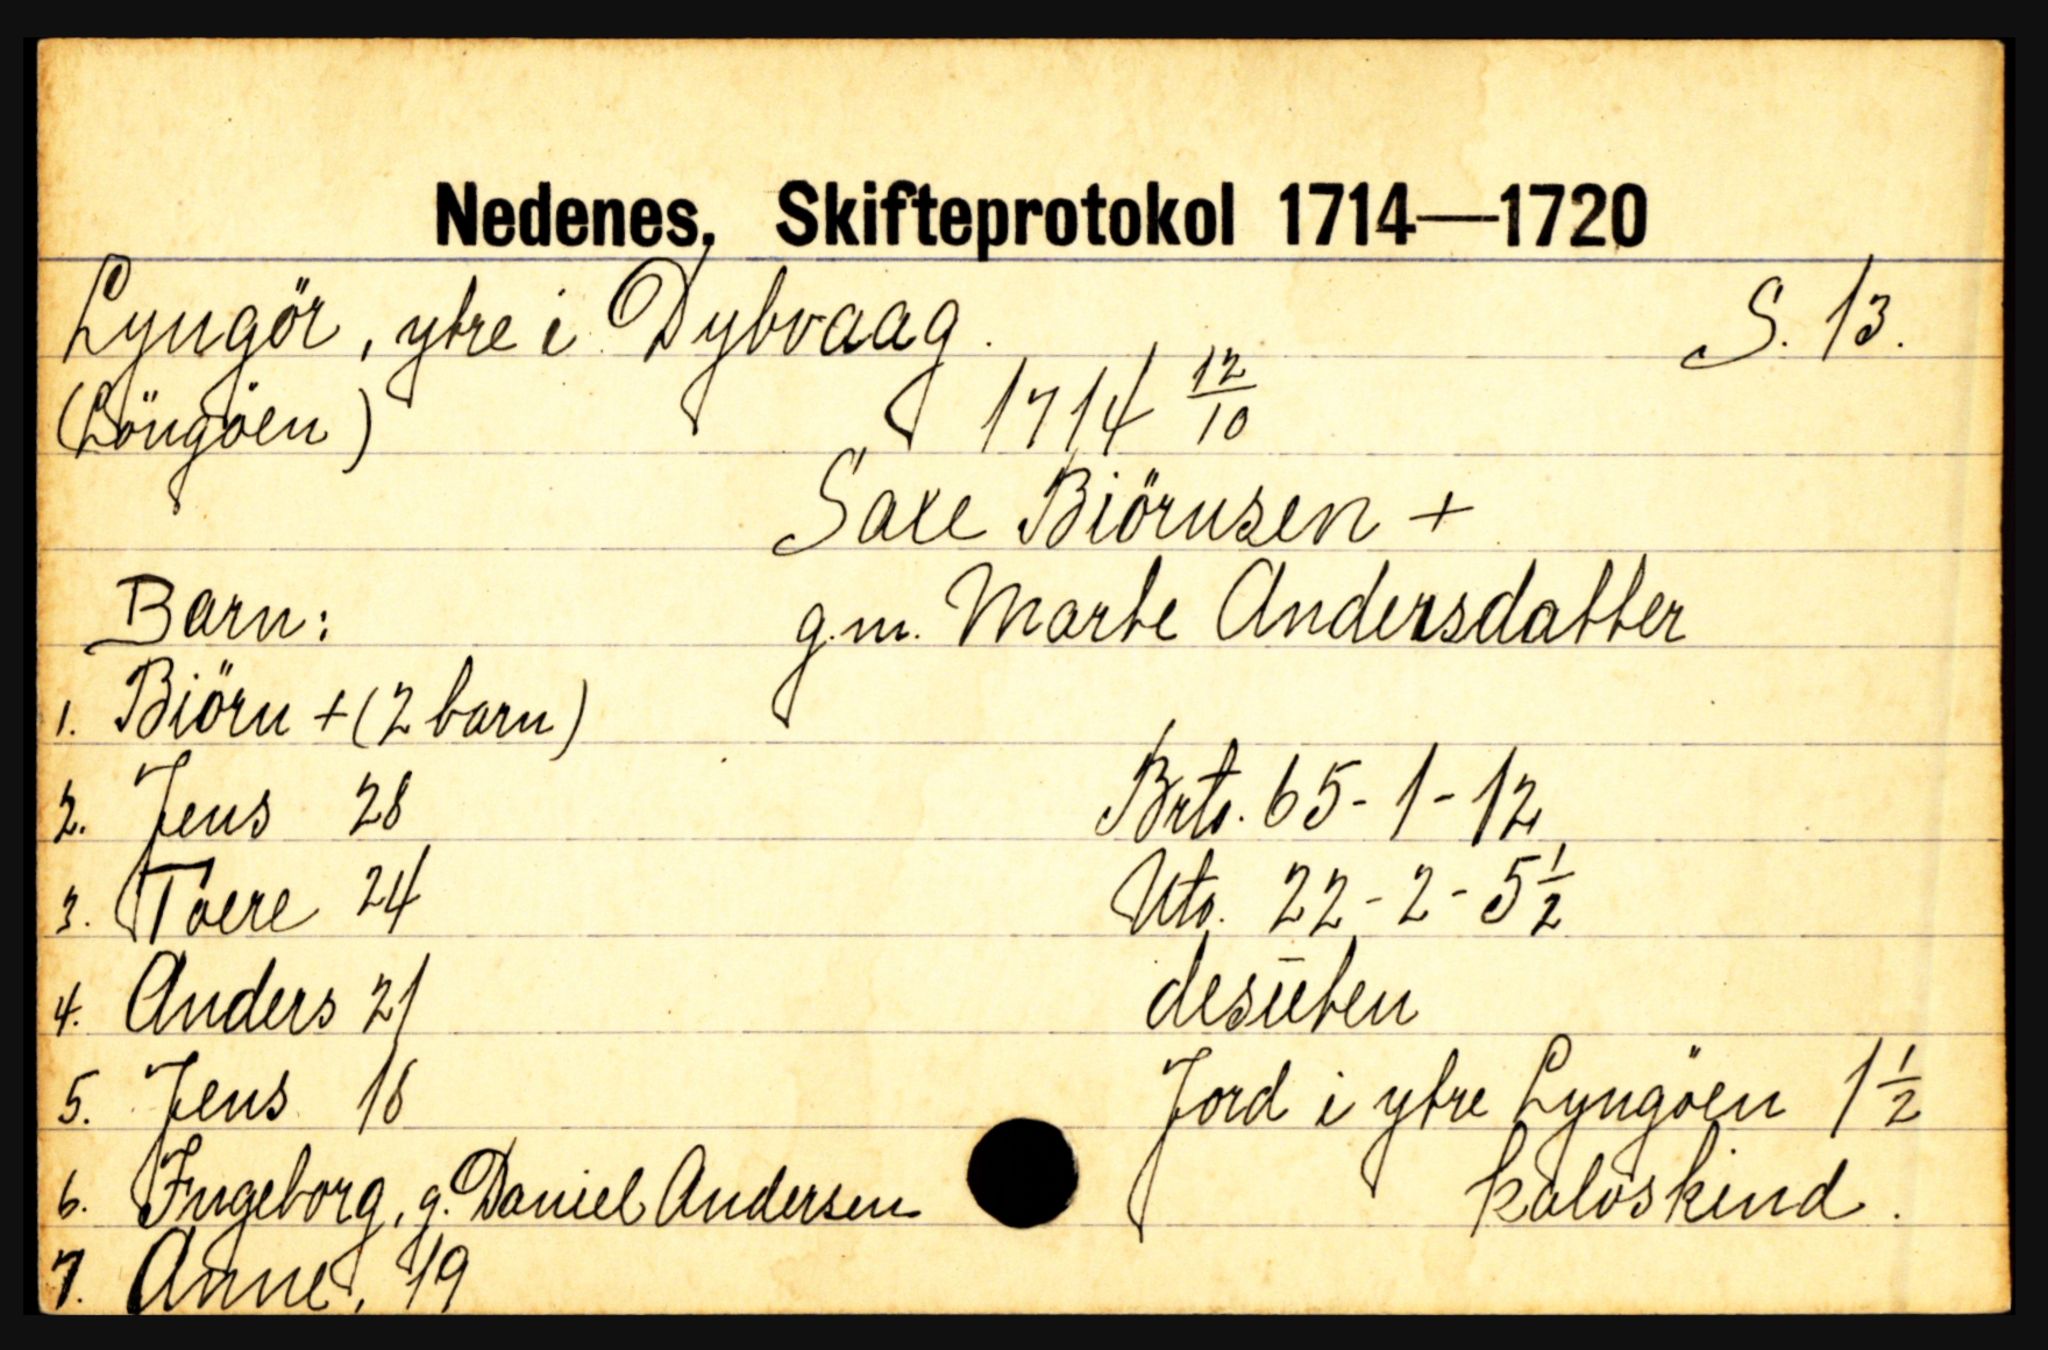 Nedenes, Skifteprotokol 1714—1720
Lyngör, ytre i Dybvaag. S. 13.
(Löngöen) 1714 12/10
Saxe Biörnsen +
Barn: g.m. Marte Andersdatter
1. Biörn + (2 barn)
2. Jens 28 Brto. 65-1-12
3. Toere 24 Nto. 22-2-5 1/2
4. Anders 21 desuten
5. Jens 18 Jord i ytre Lyngöen 1 1/2
6. Ingeborg, g. Daniel Andersen kalvskind.
7. Anne, 19